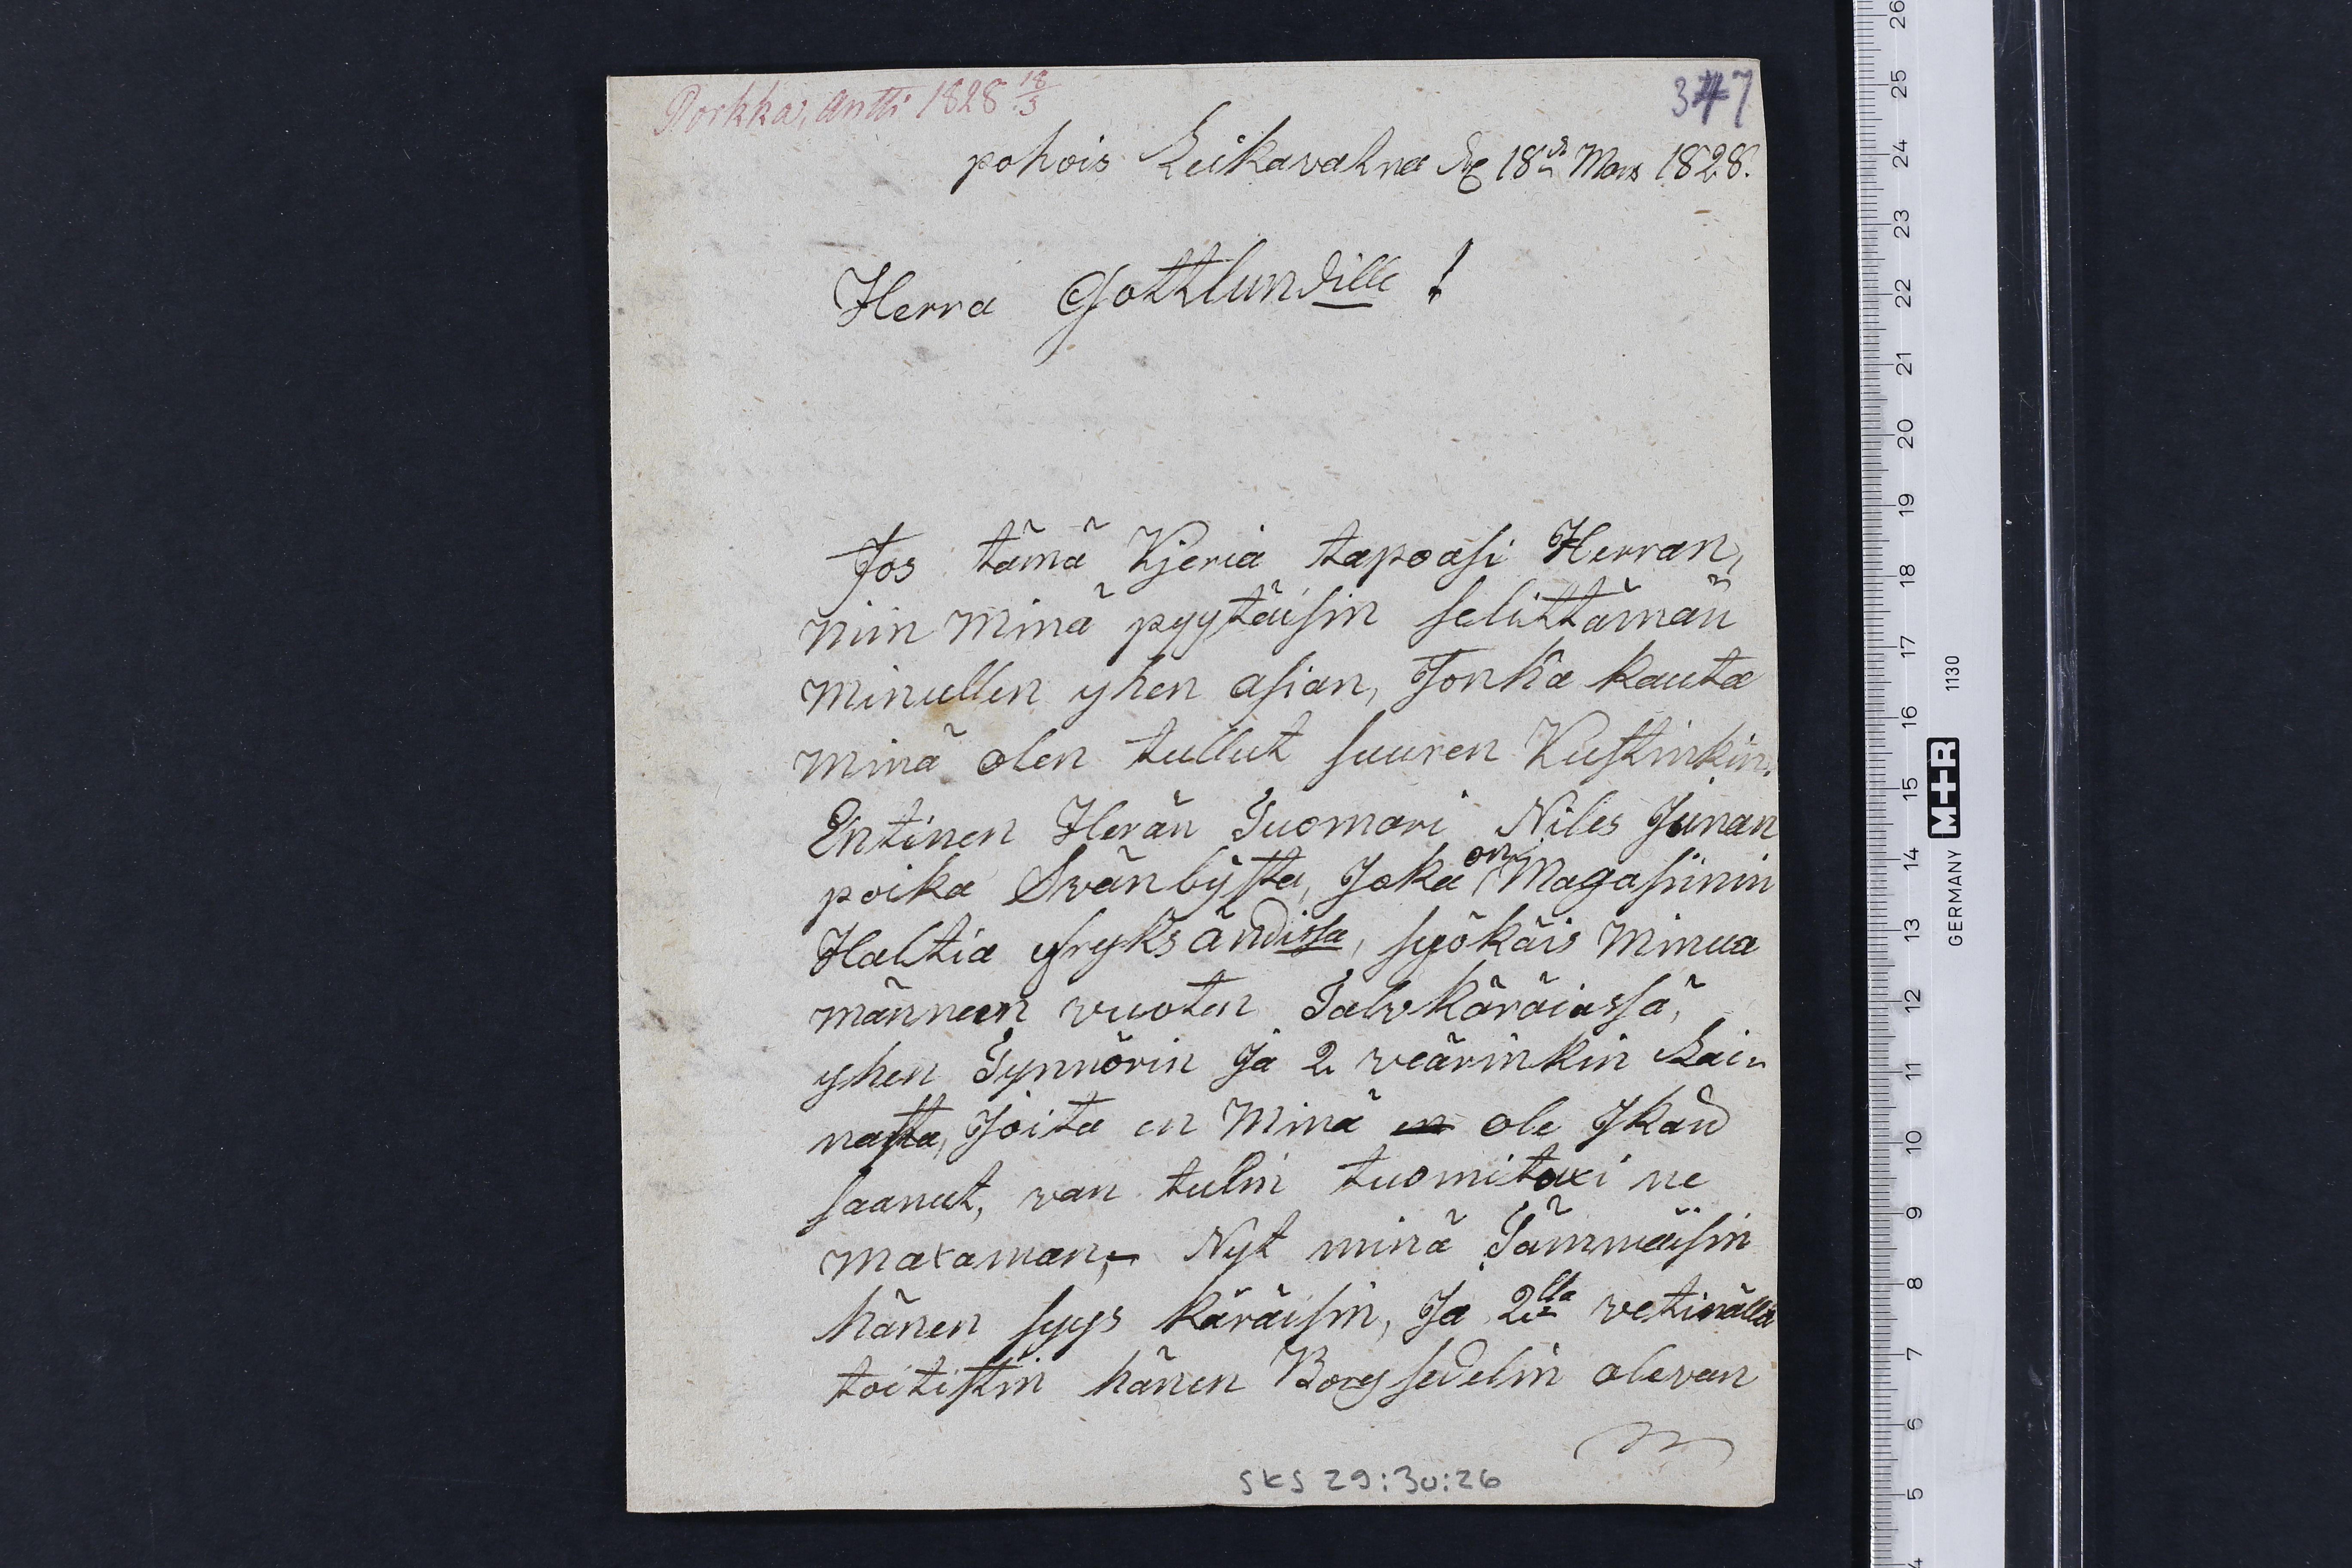 Porkka, Antti 1828 18/3
347
pohois Leikavahna 18 Mars 1828.
Herra Gottlundille!
Jos tämä Kjeria tapoasi Herran,
niin minä pyytäisin selittämän
minullen yhen asian, Jonka kauta
minä olen tullut suuren Kustinkin.
Entinen Herän Tuomari Niles Junan
poika Svänbysta, Joka on Magasiinin
Haltia fryksändissa, syökäis minua
männeen vuoten Talvkäräiassä,
yhen Tynnörin Ja 2 veärinkin Lai¬
nasta, Joita en Minä en ole Jkäd
saanut, van tulin tuomitoxi ne
maxaman,- Nyt minä Tämmäisin
hänen syys käräisin, Ja 2lla vetinällä
toitistin hänen Borgsedelin olevan
SKS 29:30:26
GERMANY M+R 1130
26
25
24
23
22
21
20
19
18
17
16
15
14
13
12
11
10
9
8
7
6
5
4